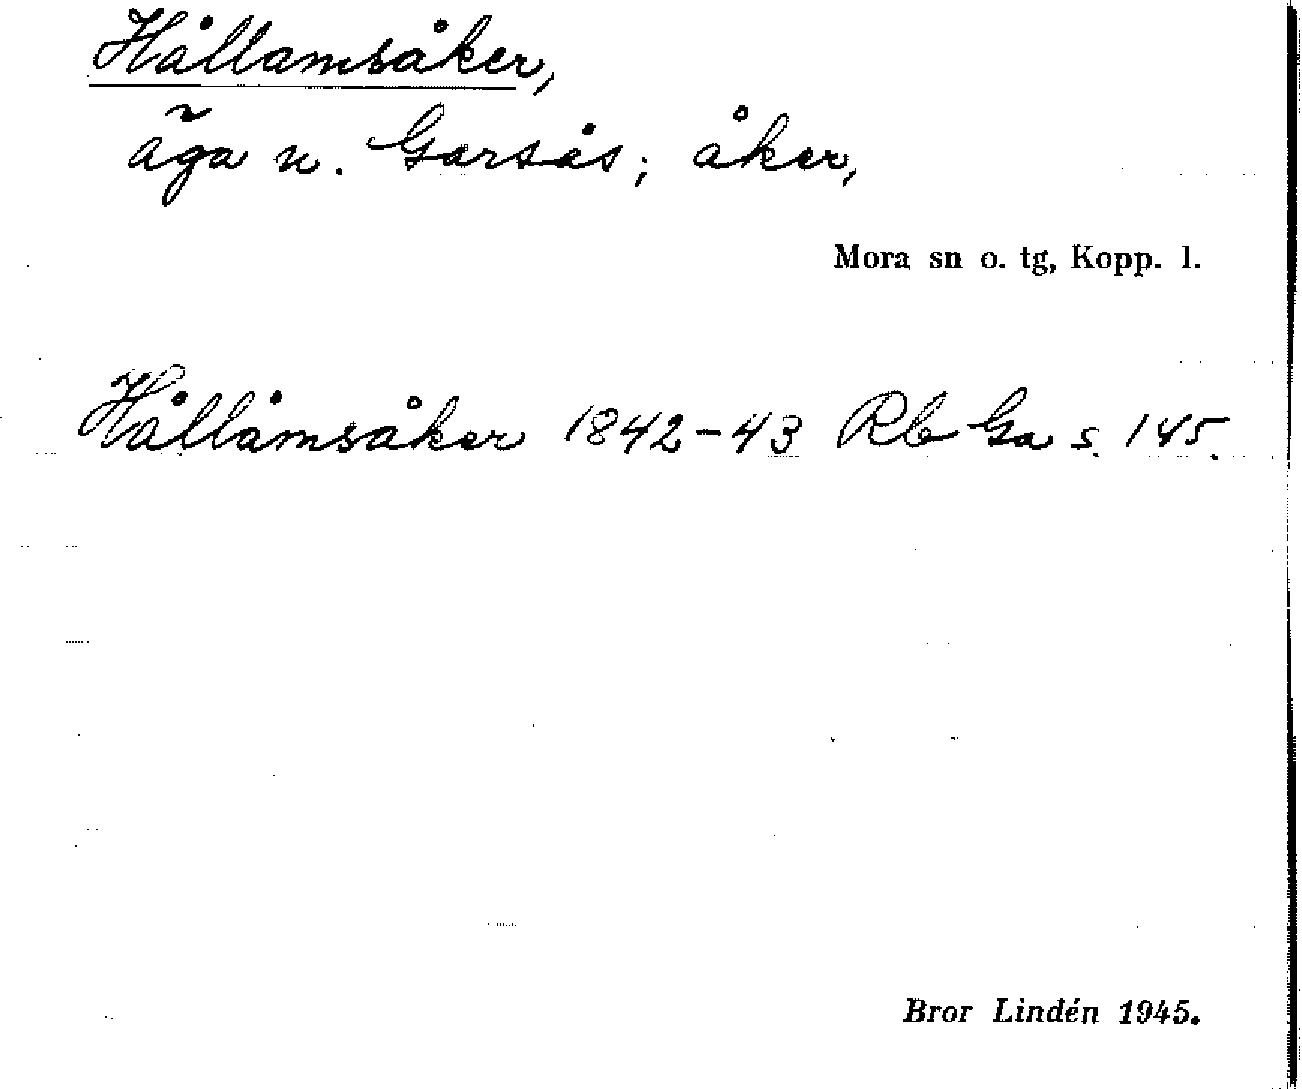 Hållamsåker,
äga n. Garsås; åker,
Mora sn o. tg, Kopp. l.
Hållåmsåker 1842-43 Rb Ga s. 145.
Bror Lindén 1945.